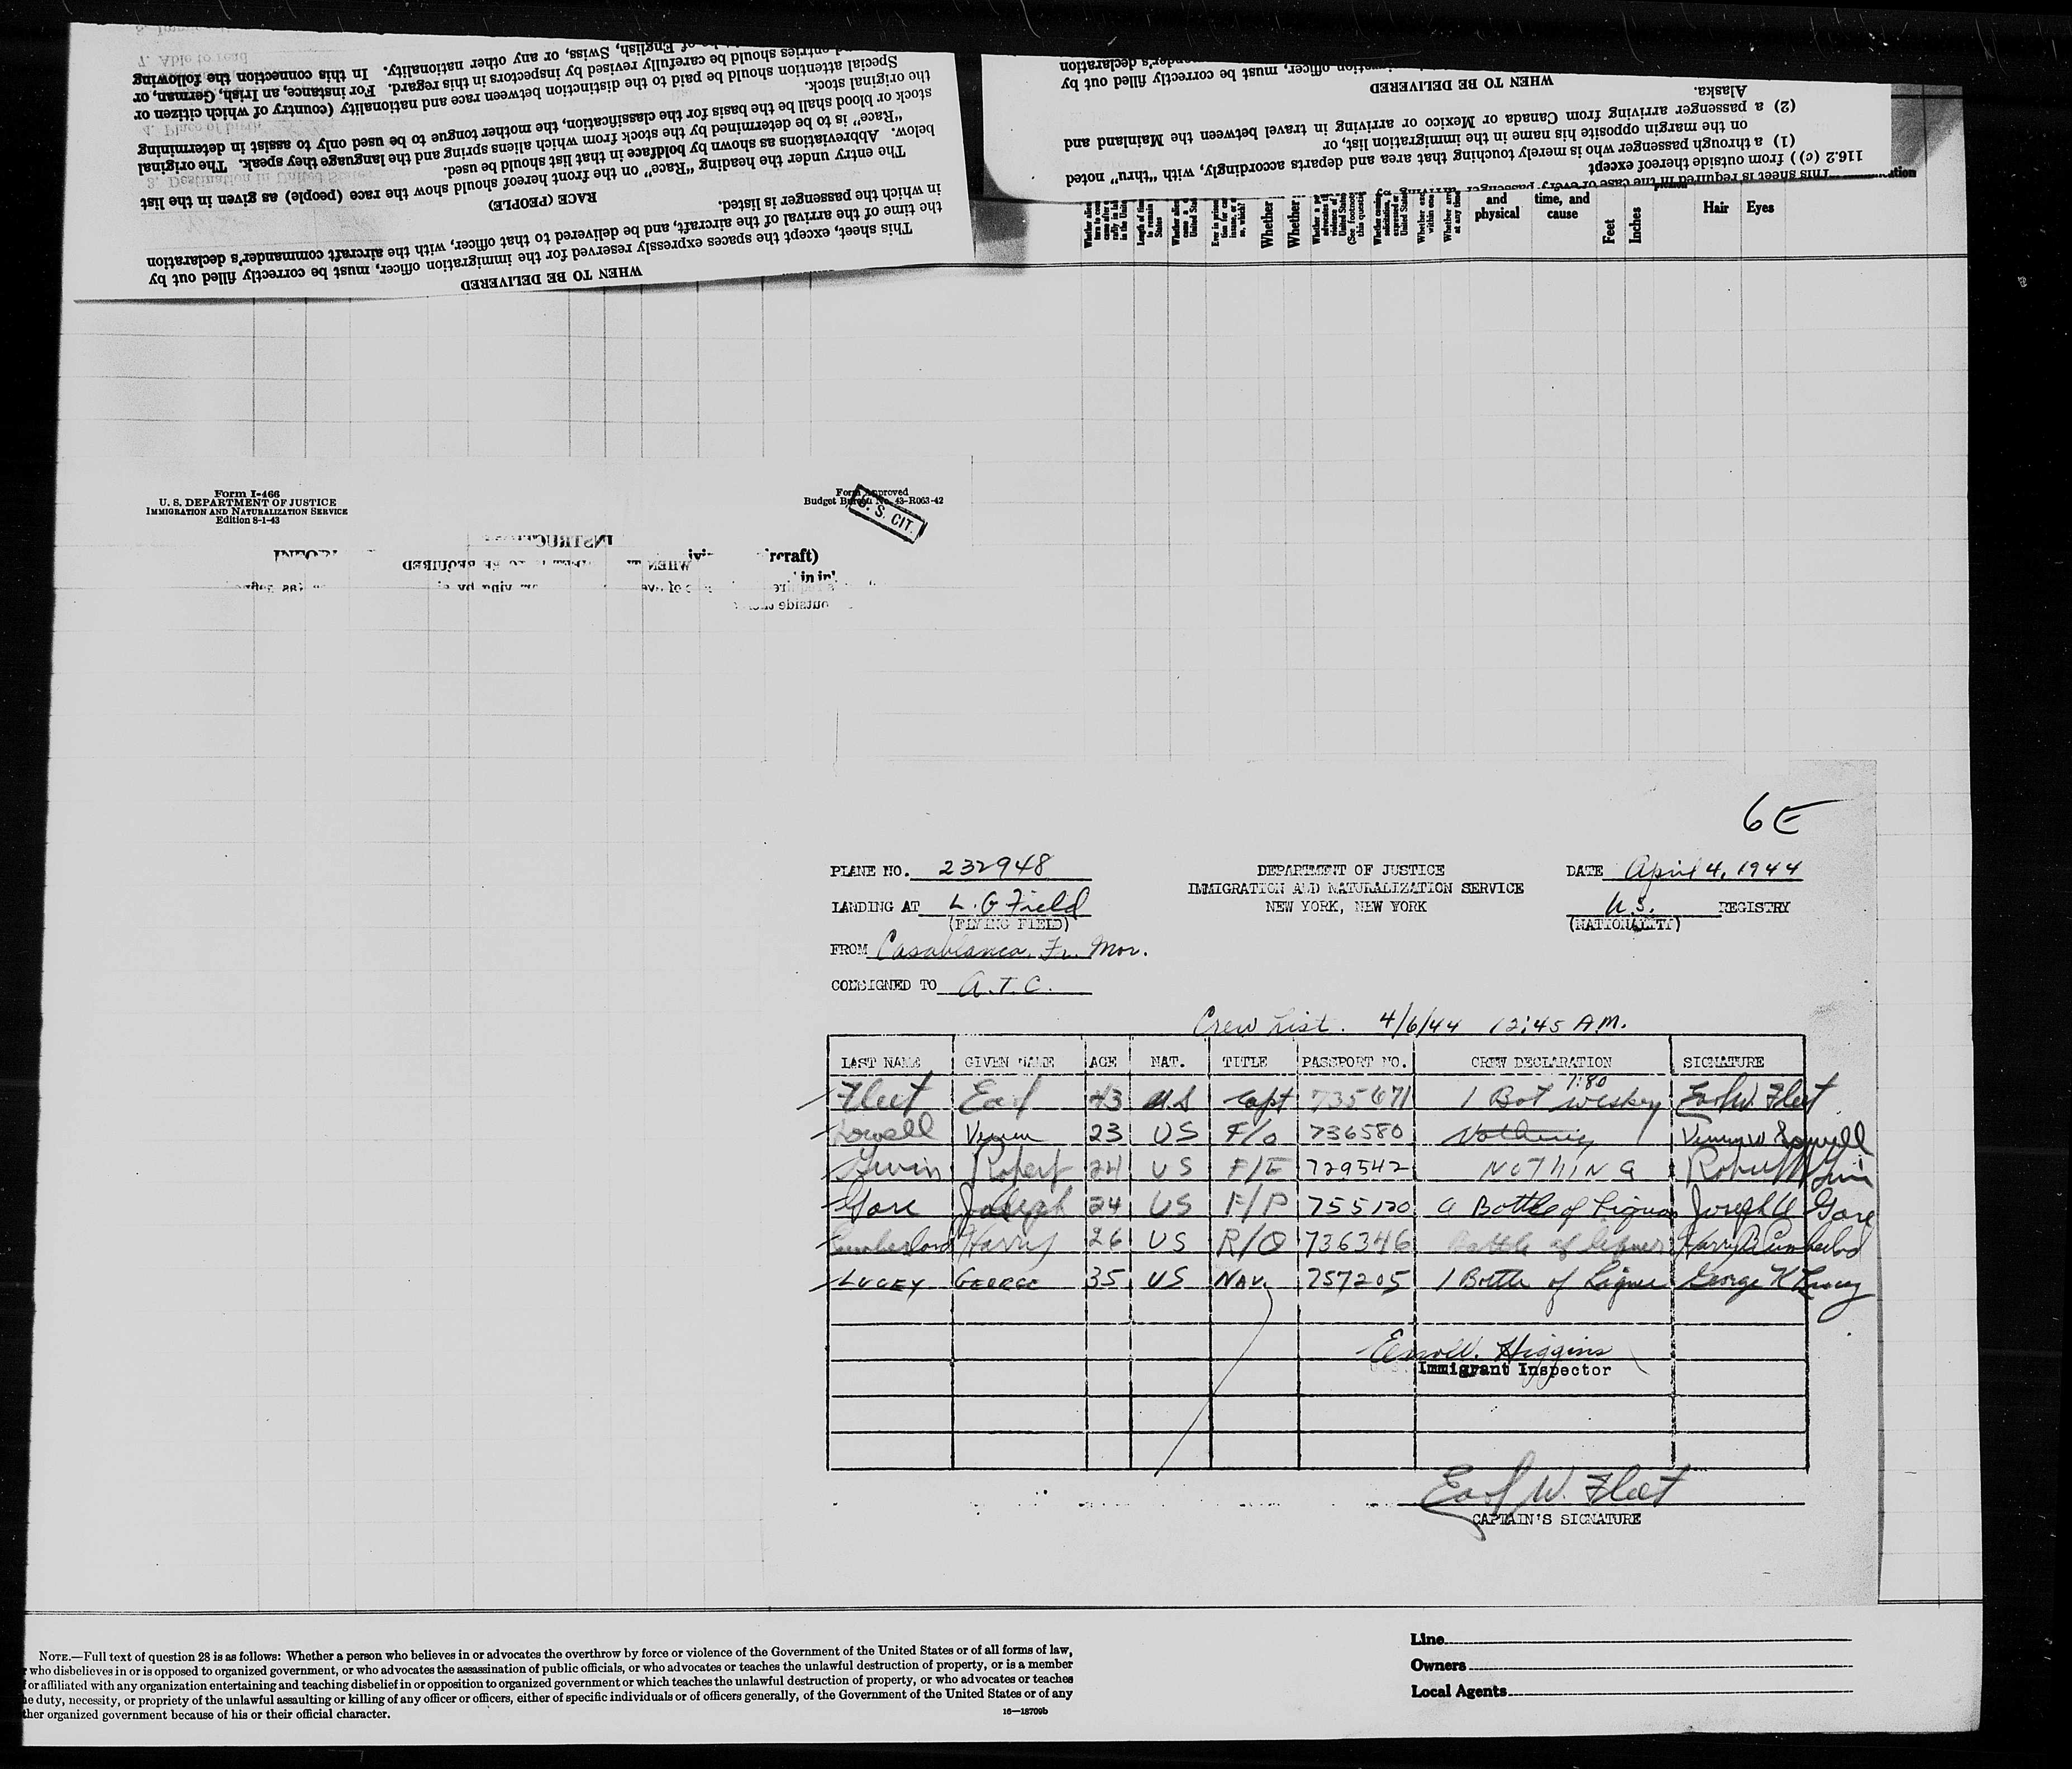 7. Able to read
of English, Swiss, or any other nationality. In this connection the following
entries should be carefully revised by inspectors in this regard. For instance, an Irish, German, or
Special attention should be paid to the distinction between race and nationality (country of which citizen or
the original stock.
stock or blood shall be the basis for the classification, the mother tongue to be used only to assist in determining
4. Place of birth
"Race" is to be determined by the stock from which aliens spring and the language they speak. The original
below. Abbreviations as shown by boldface in that list should be used.
The entry under the heading "Race" on the front hereof should show the race (people) as given in the list
3. Destination in United States
RACE (PEOPLE)
in which the passenger is listed.
the time of the arrival of the aircraft, and be delivered to that officer, with the aircraft commander's declaration
This sheet, except the spaces expressly reserved for the immigration officer, must be correctly filled out by
WHEN TO BE DELIVERED
officer, must be correctly filled out by
WHEN TO BE DELIVERED
Alaska.
(2) a passenger arriving from Canada or Mexico or arriving in travel between the Mainland and
on the margin opposite his name in the immigration list, or
(1) a through passenger who is merely touching that area and departs accordingly, with "thru" noted
116.2 (c)) from outside thereof except
This sheet is required in the case of every passenger arriving by
and physical
time, and cause
Feet
Inches
Hair
Eyes
Form I-466
U. S. DEPARTMENT OF JUSTICE
IMMIGRATION AND NATURALIZATION SERVICE
Edition 8-1-43
Form Approved
Budget Bureau No. 43-R063-42
U. S. CIT.
6E
PLANE NO. 232948
DEPARTMENT OF JUSTICE
DATE April 4, 1944
IMMIGRATION AND NATURALIZATION SERVICE
LANDING AT L. G Field
NEW YORK, NEW YORK
U.S. REGISTRY
(FLYING FIELD)
(NATIONALITY)
FROM Casablanca, Fr. Mor.
CONSIGNED TO A.T.C.
Crew List. 4/6/44 12:45 A.M.
LAST NAME GIVEN NAME AGE NAT. TITLE PASSPORT NO. CREW DECLARATION SIGNATURE
Fleet Earl 43 US Capt 735671 1 Bot wiskey Earl W. Fleet
23 US F/O 736580 Nothing
Robert 24 US F/E 729542 NOTHING Robert
Gore Joseph 24 US F/P 755120 a Bottle of Liquor Joseph Gore
Harry 26 US R/O 736346 Bottle of liquor Harry B
LUCEY GEORGE 35 US NAV. 757205 1 Bottle of Liquor George K Lucey
Higgins
Immigrant Inspector
Earl W. Fleet
CAPTAIN'S SIGNATURE
NOTE.—Full text of question 28 is as follows: Whether a person who believes in or advocates the overthrow by force or violence of the Government of the United States or of all forms of law,
who disbelieves in or is opposed to organized government, or who advocates the assassination of public officials, or who advocates or teaches the unlawful destruction of property, or is a member
or affiliated with any organization entertaining and teaching disbelief in or opposition to organized government or which teaches the unlawful destruction of property, or who advocates or teaches
duty, necessity, or propriety of the unlawful assaulting or killing of any officer or officers, either of specific individuals or of officers generally, of the Government of the United States or of any
ther organized government because of his or their official character.
16—18709b
Line
Owners
Local Agents